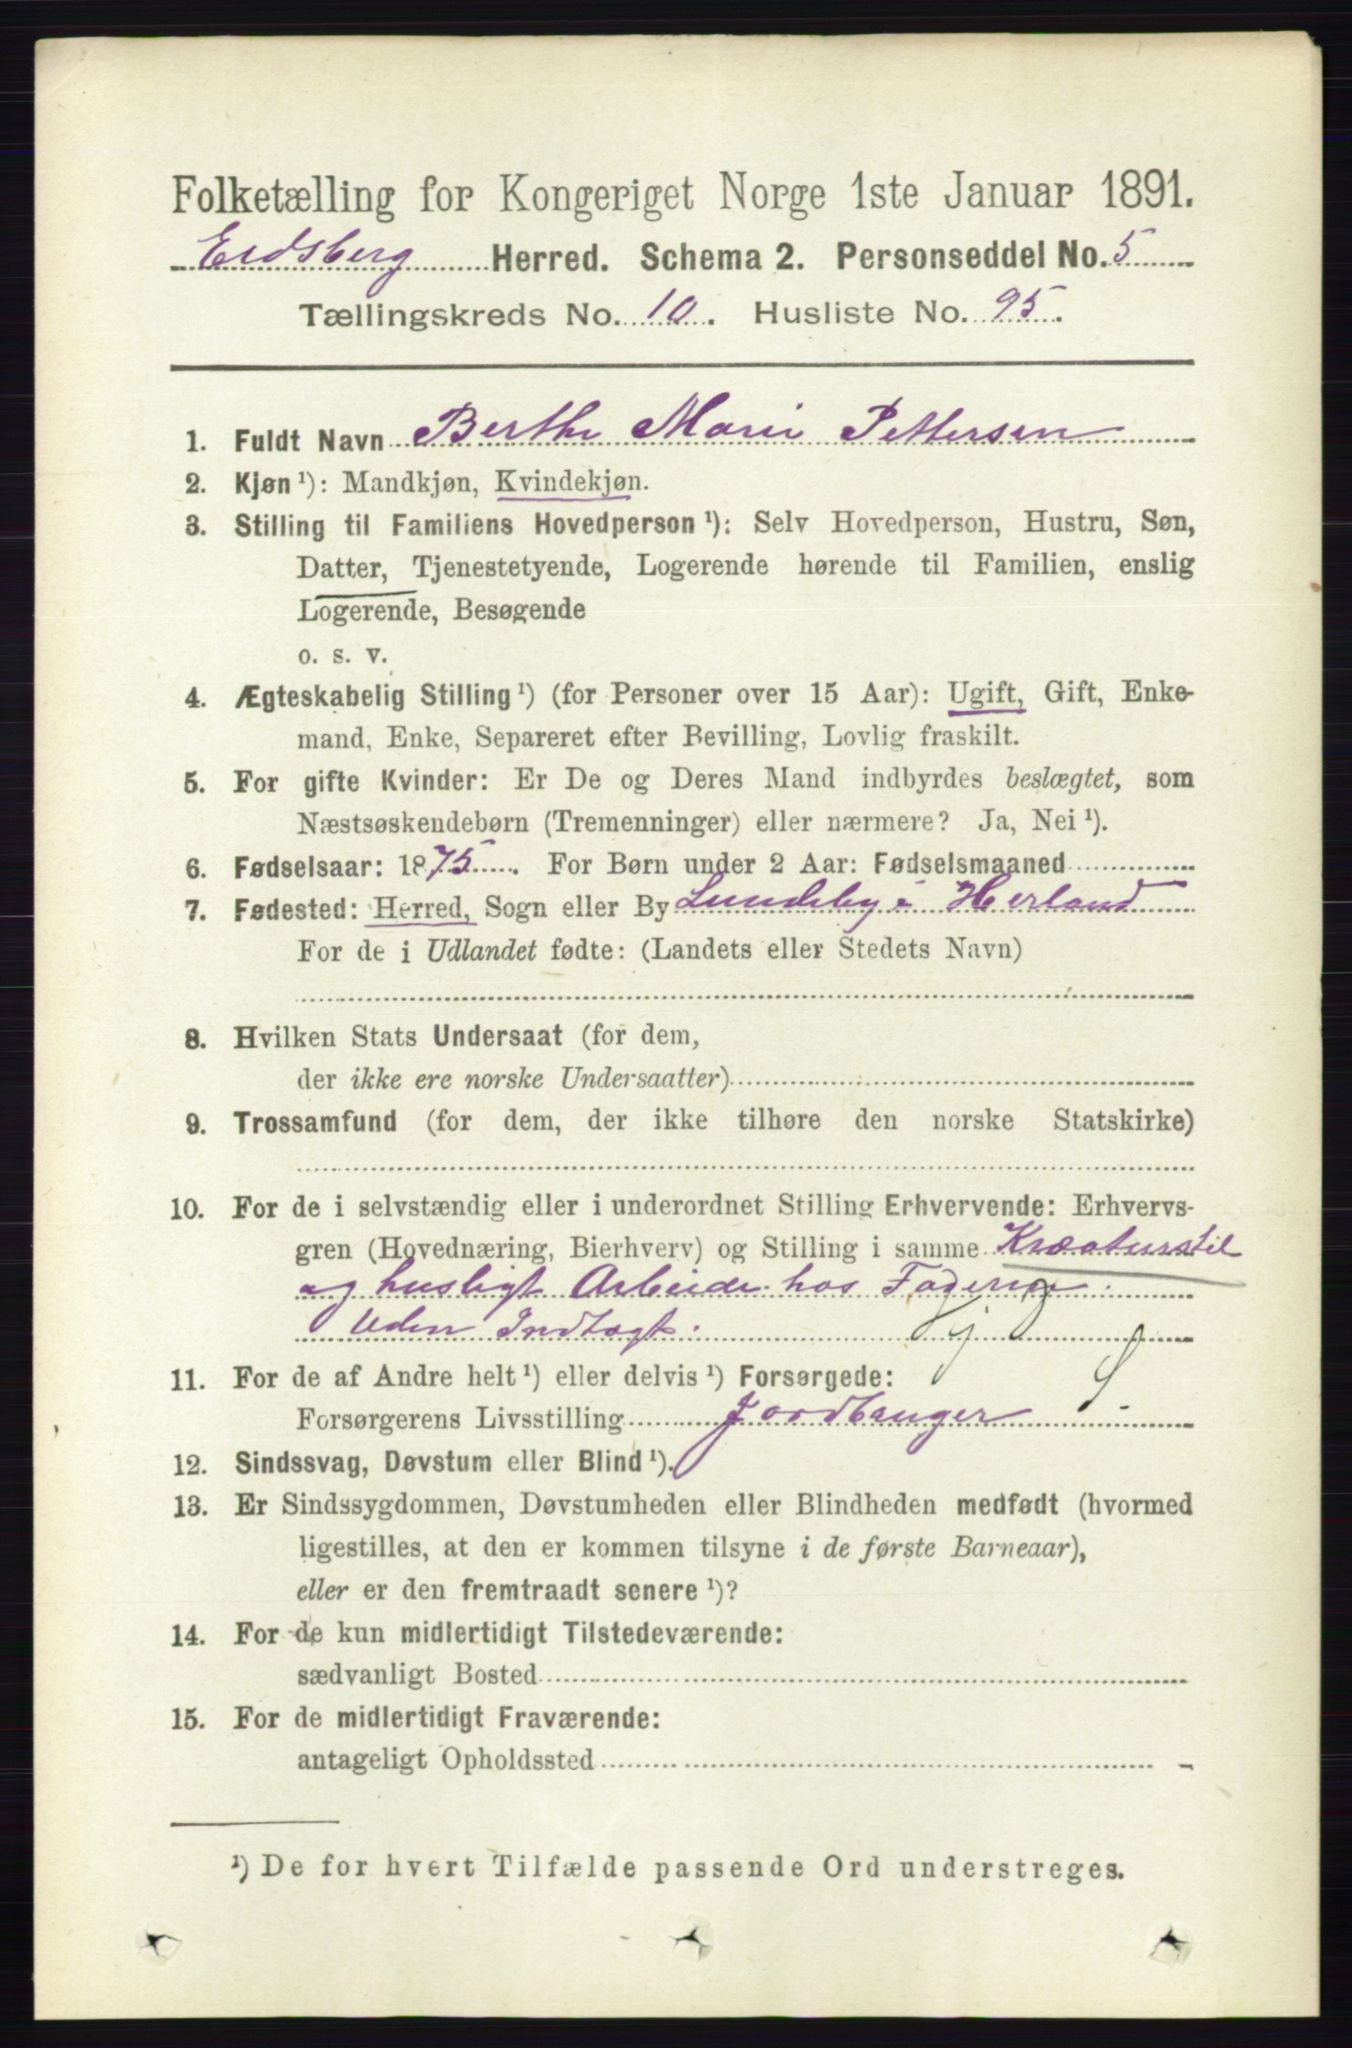 Folketælling for Kongeriget Norge 1ste Januar 1891.
Eidsberg Herred. Schema 2. Personseddel No. 5
Tællingskreds No. 10. Husliste No. 95.
1. Fuldt Navn Berthe Marie Pettersen
2. Kjøn ¹): Mandkjøn, Kvindekjøn.
3. Stilling til Familiens Hovedperson ¹): Selv Hovedperson, Hustru, Søn,
Datter, Tjenestetyende, Logerende hørende til Familien, enslig
Logerende, Besøgende
o. s. v.
4. Ægteskabelig Stilling ¹) (for Personer over 15 Aar): Ugift, Gift, Enke-
mand, Enke, Separeret efter Bevilling, Lovlig fraskilt.
5. For gifte Kvinder: Er De og Deres Mand indbyrdes beslægtet, som
Næstsøskendebørn (Tremenninger) eller nærmere? Ja, Nei ¹).
6. Fødselsaar: 1875. For Børn under 2 Aar: Fødselsmaaned
7. Fødested: Herred, Sogn eller By Lundeby i Herland
For de i Udlandet fødte: (Landets eller Stedets Navn)
8. Hvilken Stats Undersaat (for dem,
der ikke ere norske Undersaatter)
9. Trossamfund (for dem, der ikke tilhøre den norske Statskirke)
10. For de i selvstændig eller i underordnet Stilling Erhvervende: Erhvervs-
gren (Hovednæring, Bierhverv) og Stilling i samme Kreaturstel
og husligt Arbeide hos
Uden Indtægt.
11. For de af Andre helt ¹) eller delvis ¹) Forsørgede:
Forsørgerens Livsstilling Jordbruger
12. Sindssvag, Døvstum eller Blind ¹).
13. Er Sindssygdommen, Døvstumheden eller Blindheden medfødt (hvormed
ligestilles, at den er kommen tilsyne i de første Barneaar),
eller er den fremtraadt senere ¹)?
14. For de kun midlertidigt Tilstedeværende:
sædvanligt Bosted
15. For de midlertidigt Fraværende:
antageligt Opholdssted
¹) De for hvert Tilfælde passende Ord understreges.